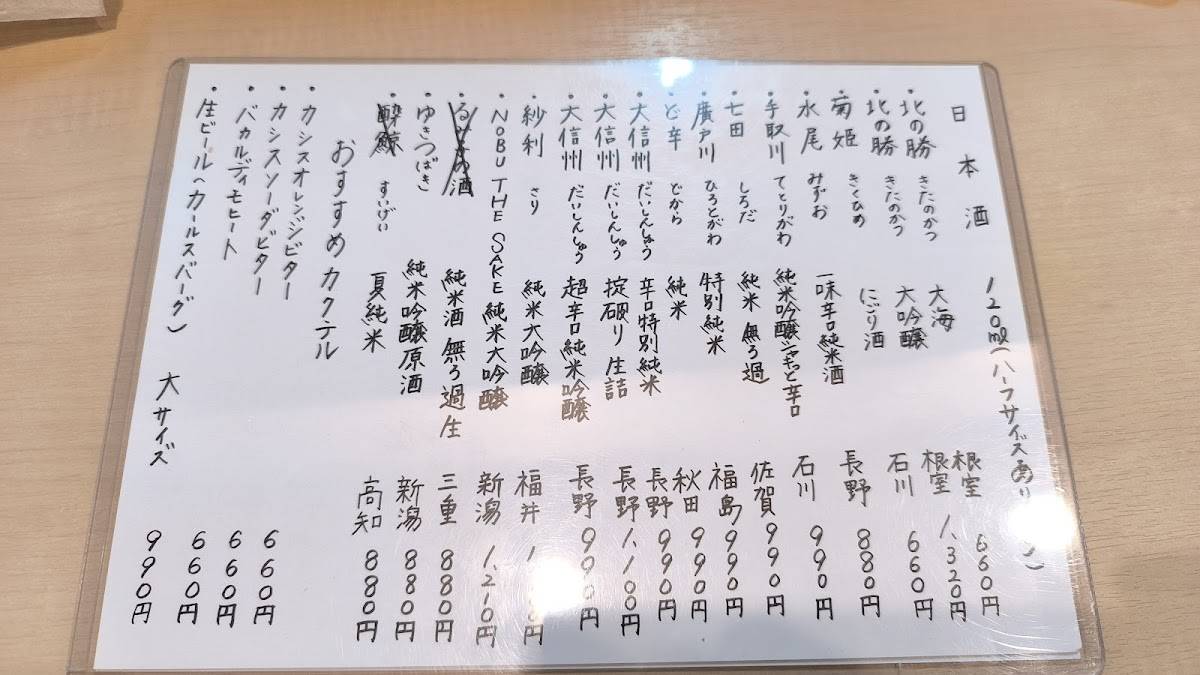 日本酒 120ml(ハーフサイズあり
・北の勝 きたのかつ 大海 根室 660円
・北の勝 きたのかつ 大吟醸 根室 1,320円
・菊姫 きくひめ にごり酒 石川 660円
・水尾 みずお 一味辛口純米酒 長野 880円
・手取川 てとりがわ 純米吟醸ジャキッと辛口 石川 990円
・七田 しろだ 純米 無ろ過 佐賀 990円
・廣戸川 ひろとがわ 特別純米 福島 990円
・ど辛 どから 純米 秋田 990円
・大信州 だいしんしゅう 辛口特別純米 長野 990円
・大信州 だいしんしゅう 掟破り 生詰 長野 1,100円
・大信州 だいしんしゅう 超辛口純米吟醸 長野 990円
・紗利 さり 純米大吟醸 福井
・NOBU THE SAKE 純米大吟醸 新潟 1,210円
・の酒 純米酒 無ろ過生 三重 880円
・ゆきつばき 純米吟醸原酒 新潟 880円
・酔鯨 すいげい 夏純米 高知 880円
おすすめカクテル
・カシスオレンジビター 660円
・カシスソーダビター 660円
・バカルディモヒート 660円
・生ビール(カールスバーグ) 大サイズ 990円